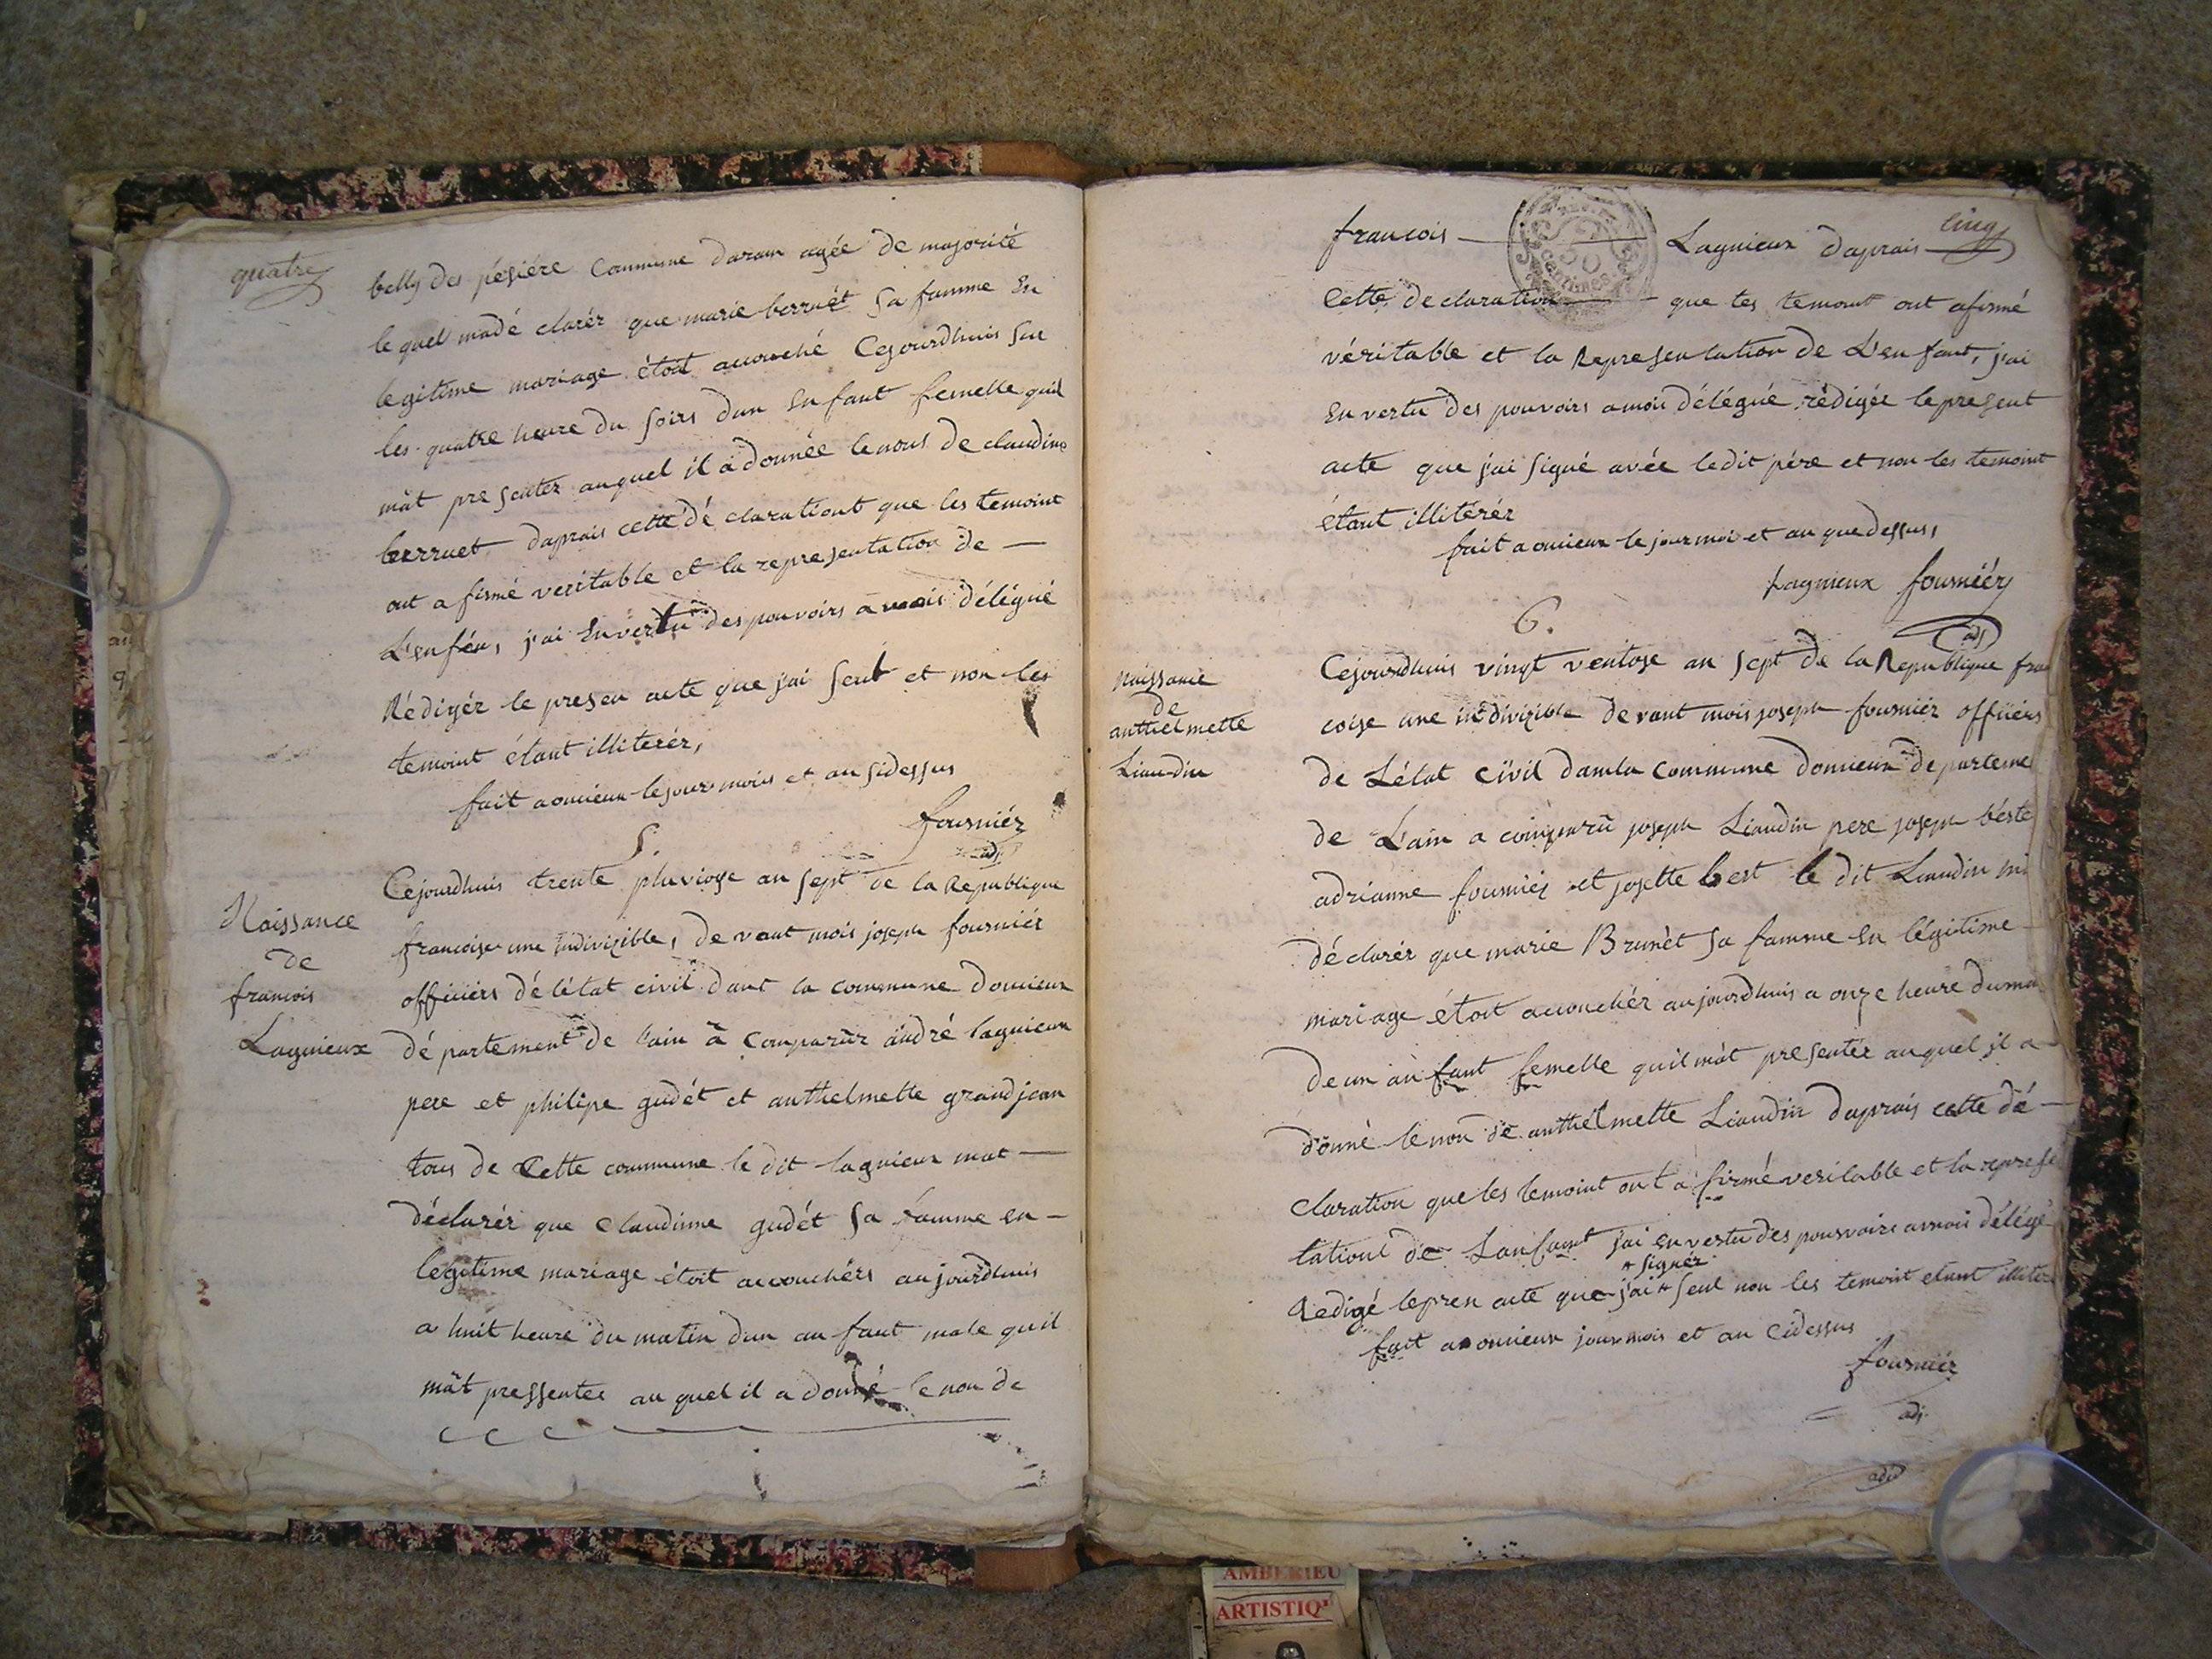 quatre
belly des pésiére Commune daran agée de majorité
le quel madé clarér que marie berruét sa famme En
legitime mariage étoit accouché Cejourdhuis sur
les quatre heure du soirs dun Enfant femelle quil
mât presenter auquel il a donnée le nous de claudine
berruet daprais cette dé claratiout que les temoint
ont afirmé veritable et la representation de —
L'enfén, j'ai En vertu des pouvoirs a mois délégué
Rédigér le presen acte que j'ai seul et non les
temoint étant illiterér,
fait a omieux le jour mois et an sidessus
fourniér
adj
5.
Naissance
de
francois
Lagnieux
Cejourdhuis trente pluviose an sept de la Republique
françoise une indivizible, de vant mois joseph fourniér
officiiérs dé létat civil dant la commune domieux
dé partement de l'ain à Comparûr andré lagnieux
pere et philipe gudét et anthelmette grandjean
tous de Cette commune le dit lagnieux mat —
déclarér que Claudinne gudét sa famme en —
legitime mariage étoit accouchérs aujourdhuis
a huit heure du matin dun an fant male quil
mât pressentee au quel il a donné le non de
cinq
francois — Lagnieux daprais —
Cette declaration — que les temoint ont afirmé
véritable et la Representation de L'enfant, j'ai
En vertu des pouvoirs a moi délégué rédigée le present
acte que j'ai signé avée ledit pére et non les temoint
étant illitérér
fait a omieux le jour moi et an que dessus,
Lagnieux fourniéry
adj
6.
Naissance
de
anthelmette
Liaudin
Cejourdhuis vingt ventose an sept de la Republique fran
coise une indivizible devant mois joseph fourniér offiiérs
de L'état civil dam la Commune domieux departeme
de L'ain a comparû joseph Liaudin pere joseph béste
adrianne fourniér et josette best le dit Liaudin m
déclarér que marie Brunét sa famme en légitime
mariage étoit accouchér aujourdhuis a onze heure du ma
de un an fant femelle quil mât presentér auquél il a
donné le non de anthelmette Liaudin daprais cette dé —
claration que les temoint ont a firmé veritable et la represe
tationt de Lanfant j'ai en vertu des pouvoirs a mois délégé
Redigé le pren acte que j'ai * seul non les temoint etant illiter
* signér
fait a omieux jour mois et an cidessus
fourniér
adj
AMBERIEU
ARTISTIQ